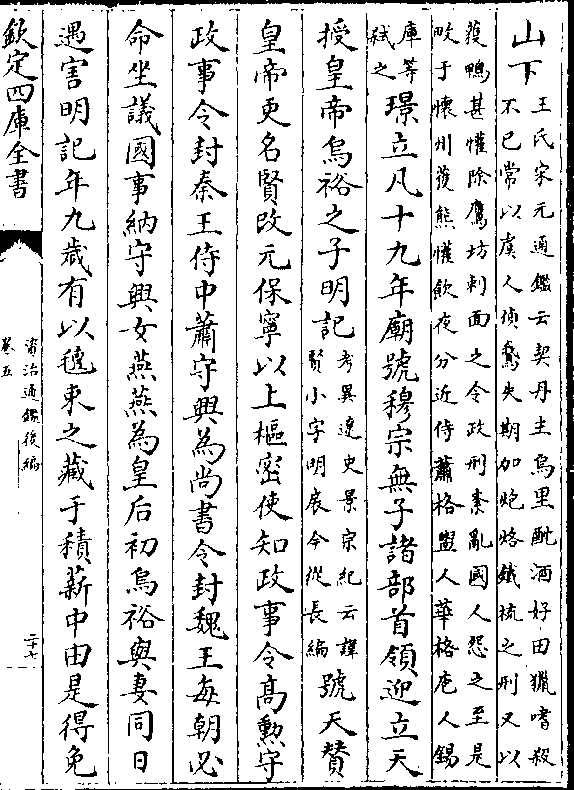 山下
王氏宋元通鑑云契丹主烏里酖酒好田獵嗜殺
不已常以虞人偵鵞失期加炮烙鐵梳之刑又以
獲鴨甚懽除鷹坊刺面之令政刑紊亂國人怨之至是
畋于懷州獲熊懽飲夜分近侍蕭格盥人華格庖人錫
庫等
弑之
璟立凡十九年廟號穆宗無子諸部首領迎立天
授皇帝烏裕之子明記
考異遼史景宗紀云諱
賢小字明扆今從長編
號天贊
皇帝更名賢改元保寧以上樞密使知政事令髙勲守
政事令封秦王侍中蕭守興為尚書令封魏王每朝必
命坐議國事納守興女燕燕為皇后初烏裕與妻同日
遇害明記年九歲有以氊束之藏于積薪中由是得免
欽定四庫全書
資治通鑑後編
卷五
二十七